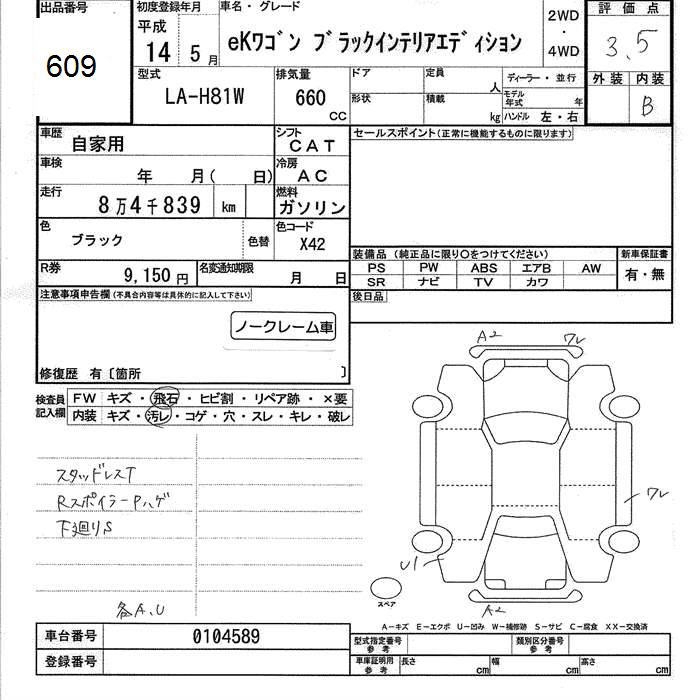 出品番号 初度登録年月 車名・グレード 評価点
609 平成 14 5月 eKワゴン ブラックインテリアエディション 2WD・4WD 3.5
型式 排気量 ドア 定員 人 ディーラー・並行 外装 内装
LA-H81W 660 CC 形状 積載 kg モデル年式 年 ハンドル 左・右 B
車歴 自家用 シフト CAT セールスポイント(正常に機能するものに限ります)
車検 年 月( 日) 冷房 AC
走行 8万4千839 km 燃料 ガソリン
色 ブラック 色替 色コード X42
装備品 (純正品に限り○をつけてください) 新車保証書
PS PW ABS エアB AW 有・無
SR ナビ TV カワ
R券 9,150円 名変通知期限 月 日
後日品
注意事項申告欄(不具合内容等は具体的に記入して下さい)
ノークレーム車
修復歴 有〔箇所 〕
検査員記入欄 FW キズ・飛石・ヒビ割・リペア跡・×要
内装 キズ・汚レ・コゲ・穴・スレ・キレ・破レ
A2 ワレ
スタッドレスT
RスポイラーPハゲ
ワレ
下廻りS
U1
スペア
各A、U
A2
A-キズ E-エクボ U-凹み W-補修跡 S-サビ C-腐食 XX-交換済
車台番号 0104589 型式指定番号 参考 類別区分番号 参考
登録番号 車庫証明用 参考 長さ cm 幅 cm 高さ cm